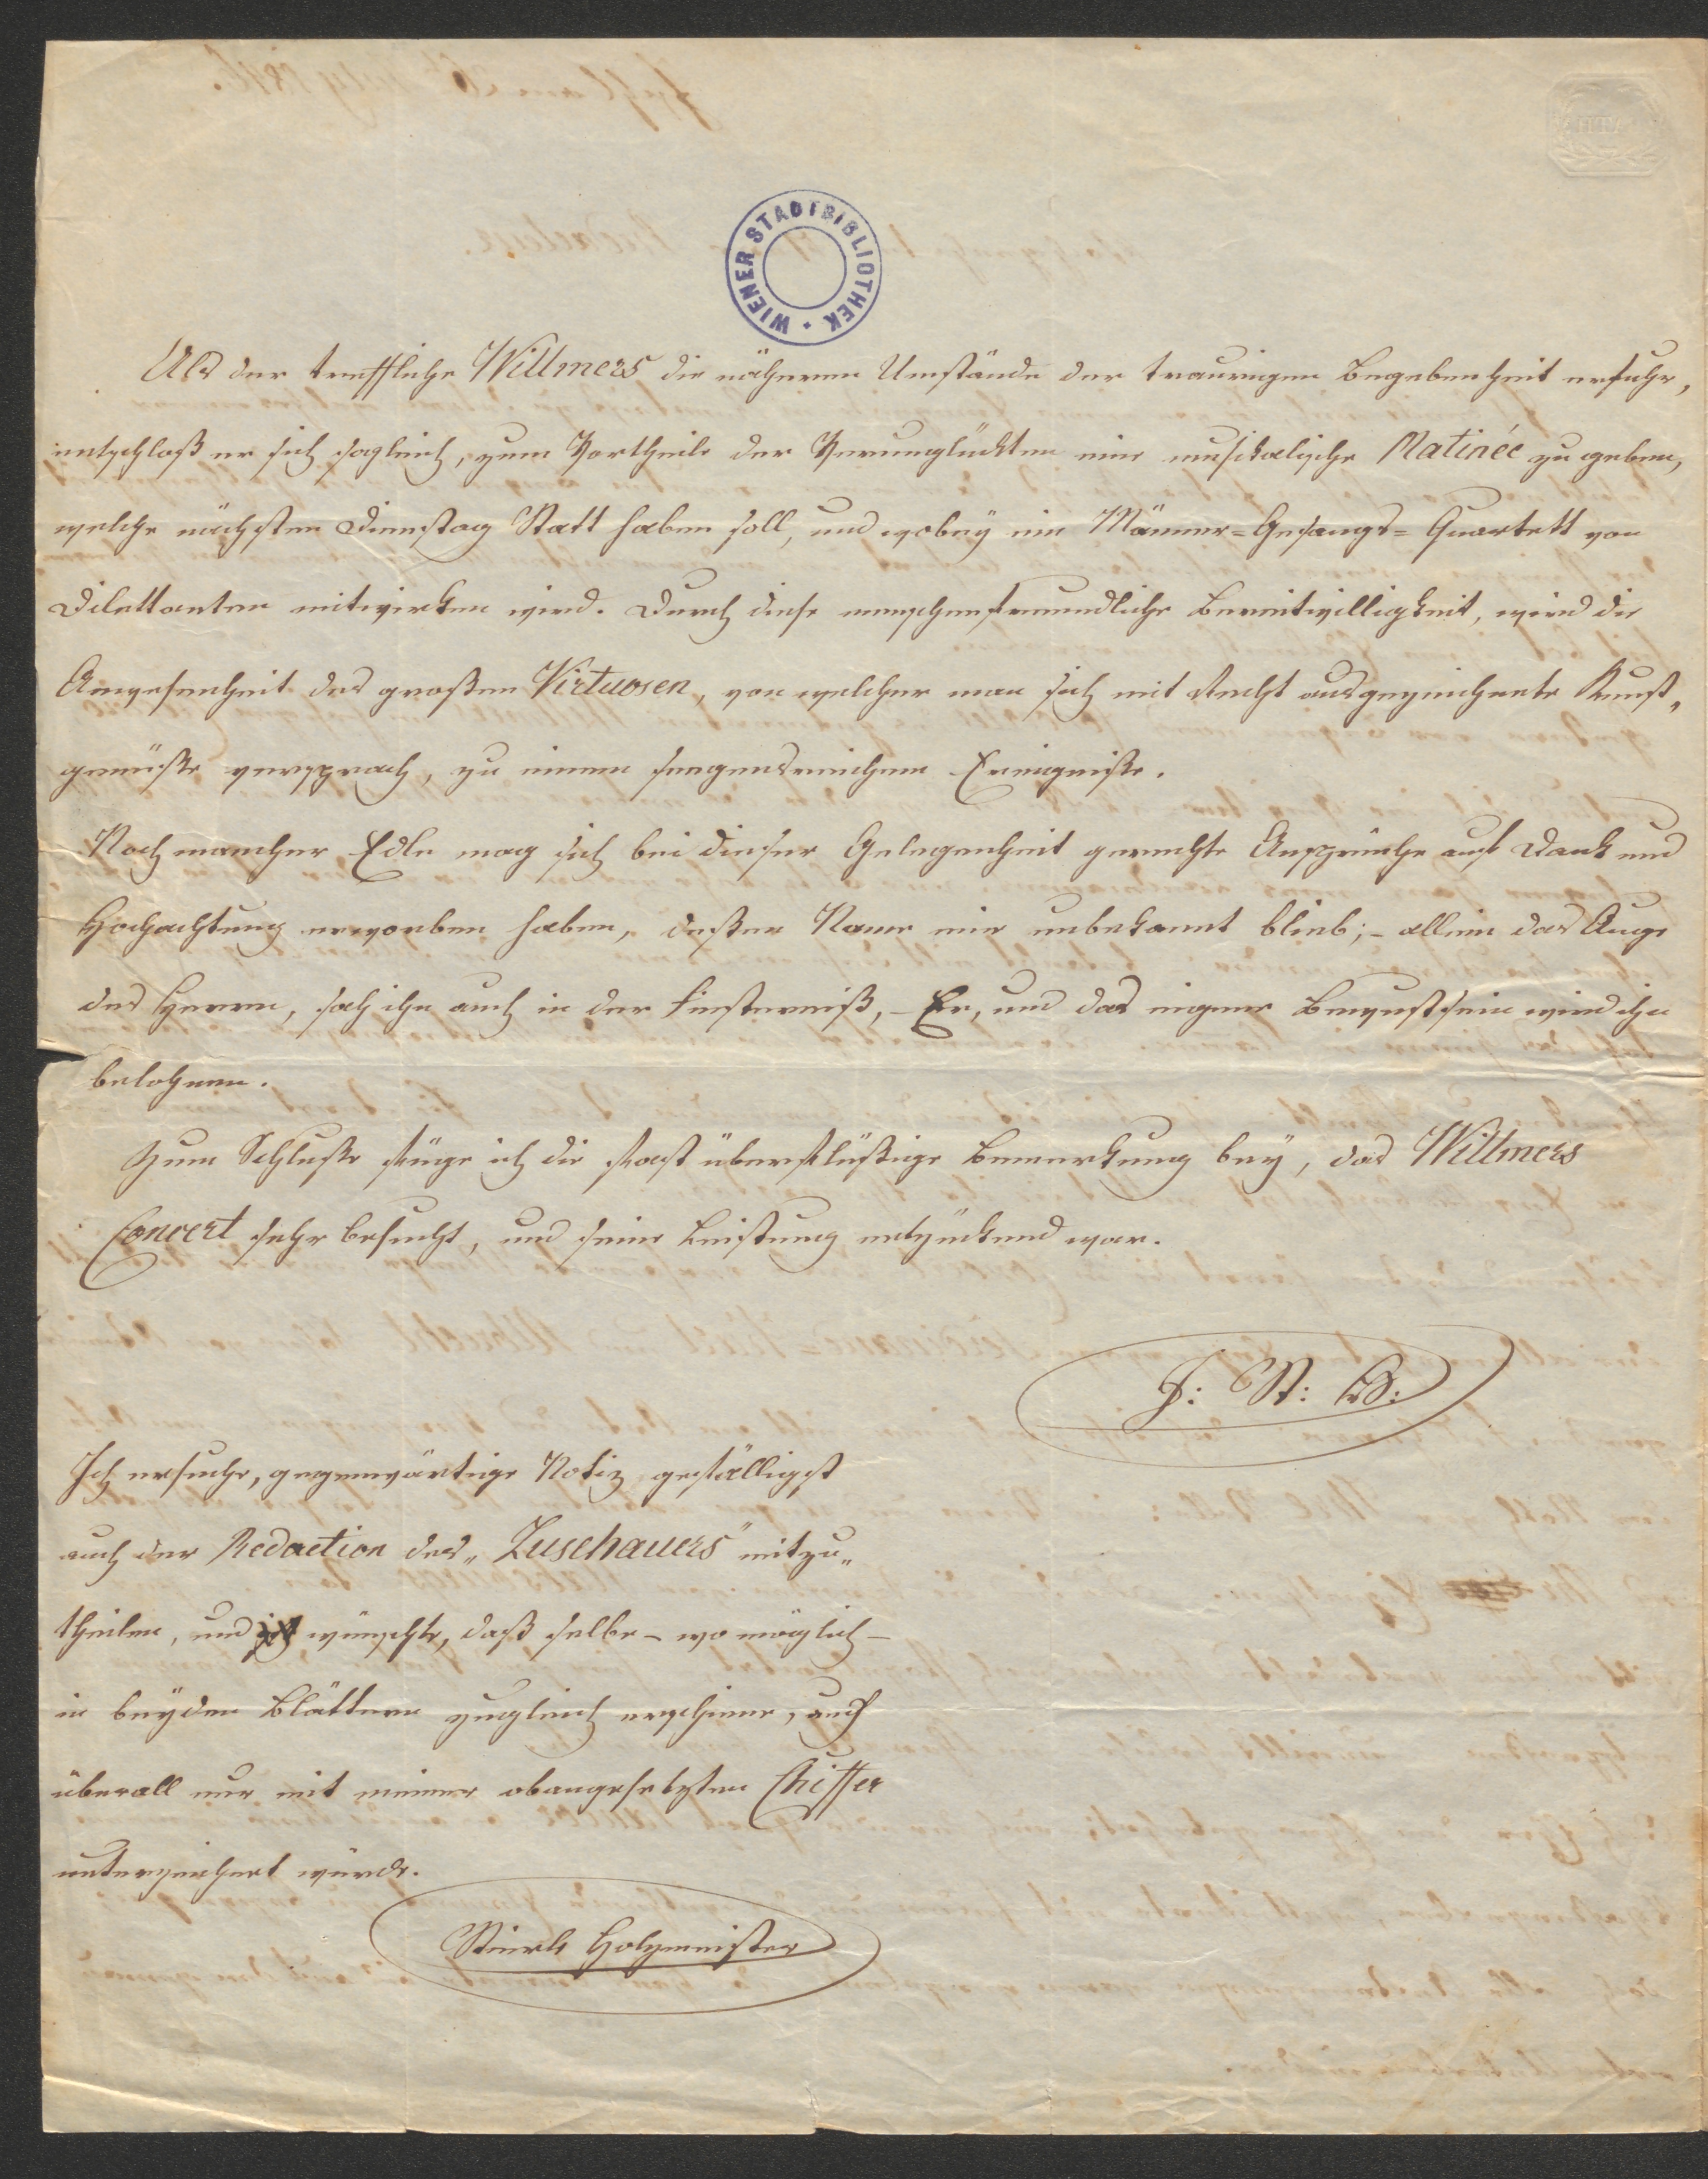 WIENER STADTBIBLIOTHEK
Als der treffliche Willmers die näheren Umstände der traurigen Begebenheit erfuhr,
entschloß er sich sogleich, zum Vortheile der Verunglückten eine musikalische Matinée zu geben,
welche nächsten Dienstag Statt haben soll, und wobey ein Männer=Gesangs=Quartett von
Dilettanten mitwirken wird. Durch diese menschenfreundliche Bereitwilligkeit, wird die
Anwesenheit des großen Virtuosen, von welcher man sich mit Recht ausgezeichnete Kunst„
genüße versprach, zu einem seegensreichen Ereigniße.
Noch mancher Edle mag sich bei dieser Gelegenheit gerechte Ansprüche auf Dank und
Hochachtung erworben haben, deßen Name mir unbekannt blieb; – allein das Auge
des Herrn, sah ihn auch in der Finsterniß, – Er, und das eigene Bewustsein wird ihn
belohnen.
Zum Schluße füge ich die fast überflüßige Bemerkung bey, das Willmers
Concert sehr besucht, und seine Leistung entzückend war.
J: St: H:
Ich ersuche, gegenwärtige Notiz gefälligst
auch der Redaction des „Zuschauers" mitzu„
theilen, und wünschte, daß selbe – wo möglich –
in beyden Blättern zugleich erschiene, auch
überall nur mit meiner obangesetzten Chiffer
unterzeichnet würde.
Stierle Holzmeister